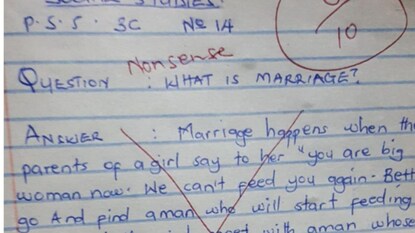 SOCIAL STUDIES.
P.S.S. 3C № 14
10
Nonsense
QUESTION : WHAT IS MARRIAGE?
ANSWER : Marriage happens when the
parents of a girl say to her "you are big
woman now. We can't feed you again. Bett
go And find a man who will start feeding
with a man whose